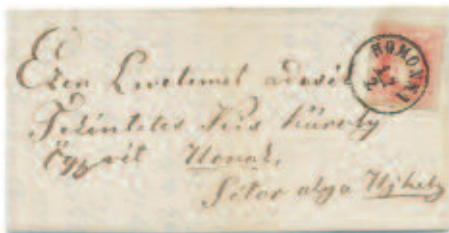 HOMONNA
Ezen Levelemet adassék
Tekintetes Kiss Károly
Ügyvéd Urnak,
Sator alya Ujhely